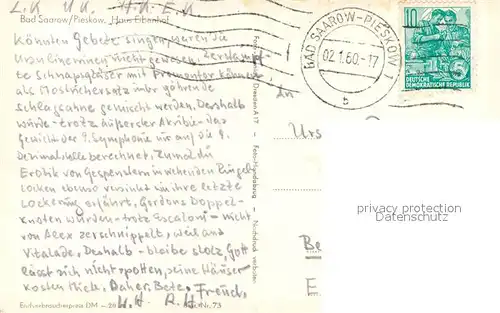 L.K. U.U. H.K. E.K
Bad Saarow/Pieskow, Haus Eibenhof
Könnten Gebete singen, wären die
Ursulinerinnen nicht gewesen.
te Schnapsgläser mit können
als Mostrichersatz unter gährende
Schlagsahne gemischt werden. Deshalb
würde - trotz äußerster Akribie - das
Gewicht der 9. Symphonie nur auf die 8.
Dezimalstelle berechnet. Zumal die
Erotik von Gespenstern in wehenden Ringel-
locken ebenso versinkt wie ihre letzte
Lockerung erfährt, Gordons Doppel-
knoten würden - trotz Escaloni - nicht
von Alex zerschnippelt, weil
Deshalb - bleibe stolz, Gott
lässt sich nicht spotten, seine Häuser
kosten Miete. Daher: Bete, Freund,
H.H. R.H.
Endverbraucherpreis DM
Nr. 73
Dresden A 17 - Foto-Handabzug - Nachdruck verboten
BAD SAAROW-PIESKOW 1
02.1.60.-17
b
10
5
DEUTSCHE
DEMOKRATISCHE REPUBLIK
An
Urs
Be
E
privacy protection
Datenschutz